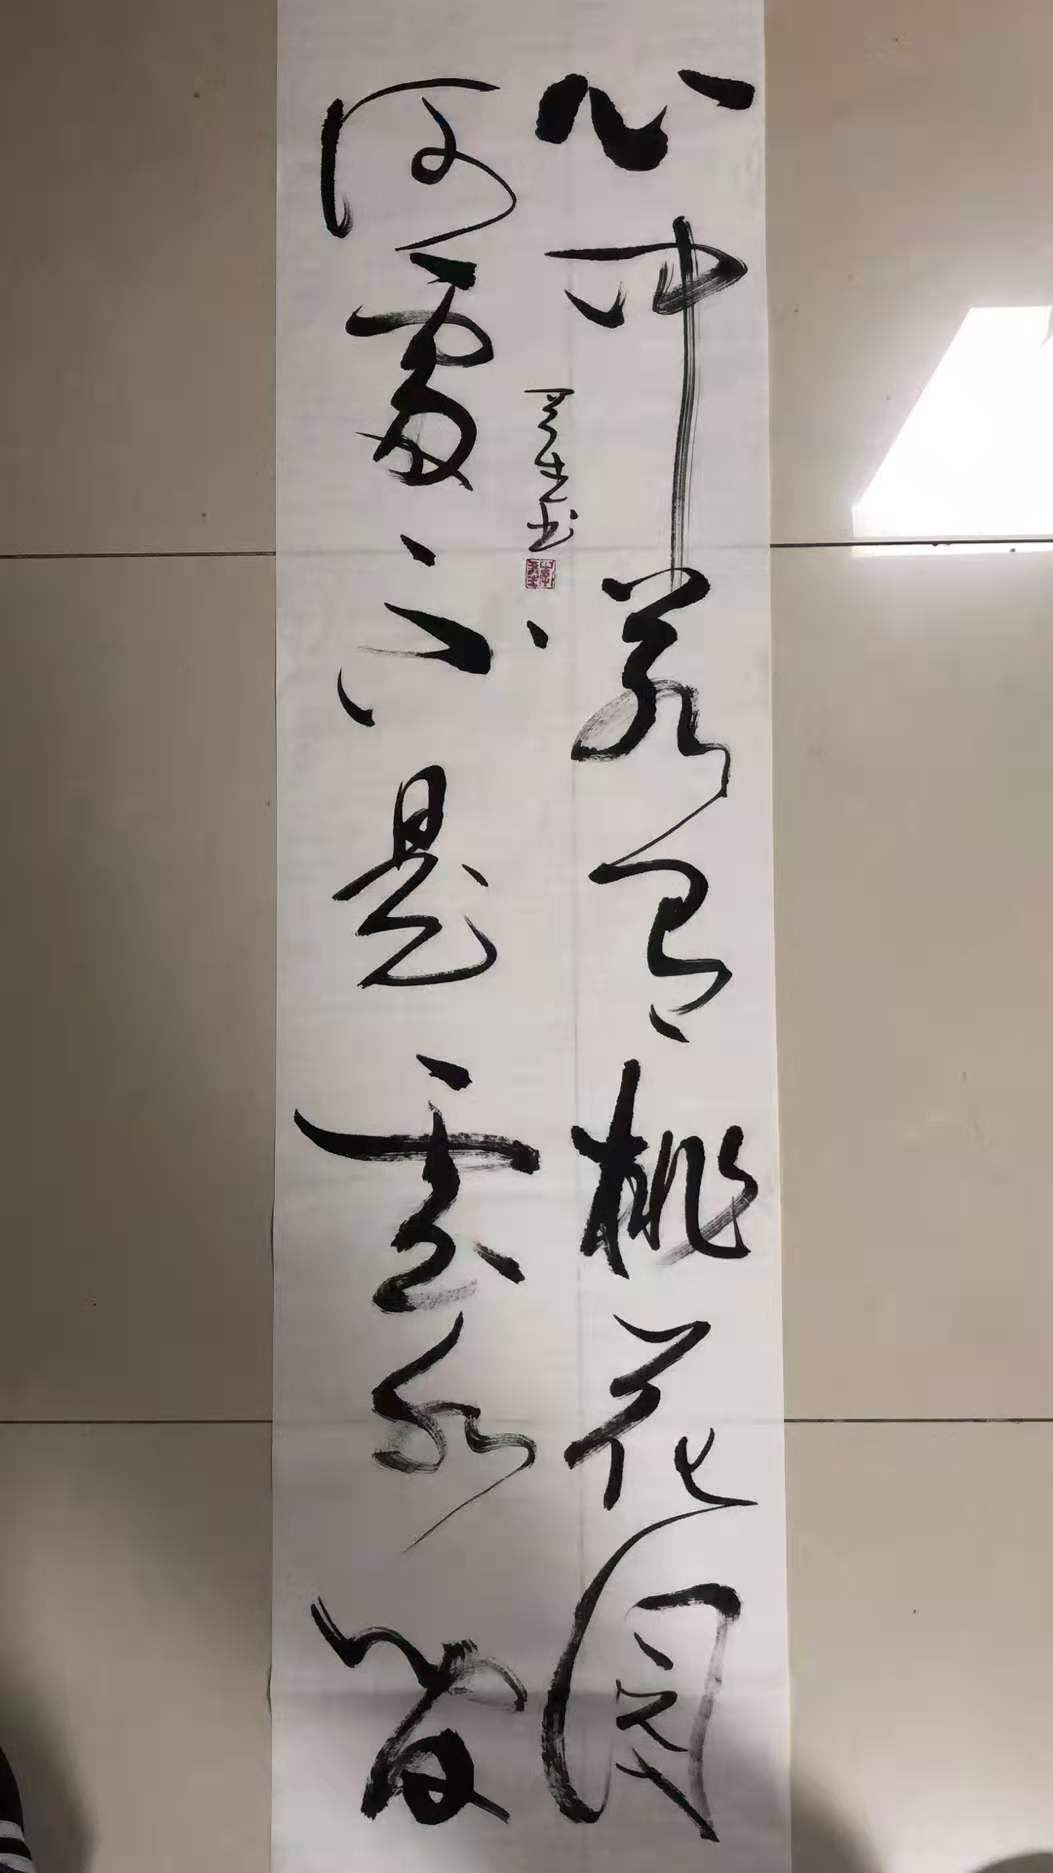 心中若有桃花园
何处不是云水间